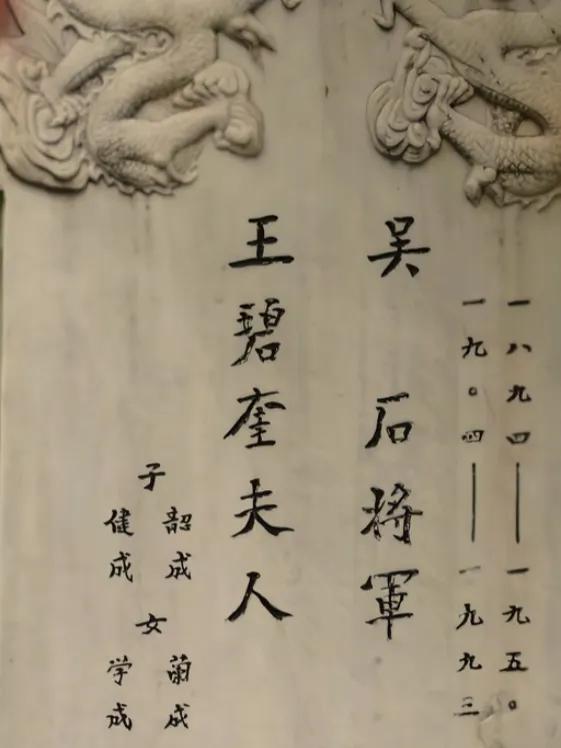 一八九四——一九五〇
一九〇四——一九九三
吴石将軍
王碧奎夫人
子 韶成 女 蘭成
健成 学成